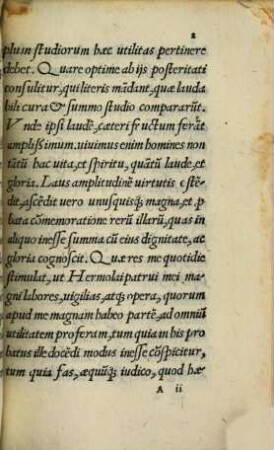 2
plum studiorum hæc utilitas pertinere
debet. Quare optime ab ijs posteritati
consulitur, qui literis mādant, quæ lauda
bili cura & summo studio compararūt.
Vnde ipsi laudē, cæteri fructum ferāt
amplissimum. uiuimus enim homines non
tātū hac uita, et spiritu, quātū laude, et
gloria. Laus amplitudinē virtutis ostē-
dit, ascēdit uero unusquisq; magna, et p
bata cōmemoratione rerū illarū, quas in
aliquo inesse summa cū eius dignitate, ac
gloria cognoscit. Quæ res me quotidie
stimulat, ut Hermolai patrui mei ma
gni labores, uigilias, atq; opera, quorum
apud me magnam habeo partē, ad omniū
utilitatem proferam, tum quia in his pro
batus ille docēdi modus inesse cōspicitur,
tum quia fas, æquūq; iudico, quod hæ
A ii